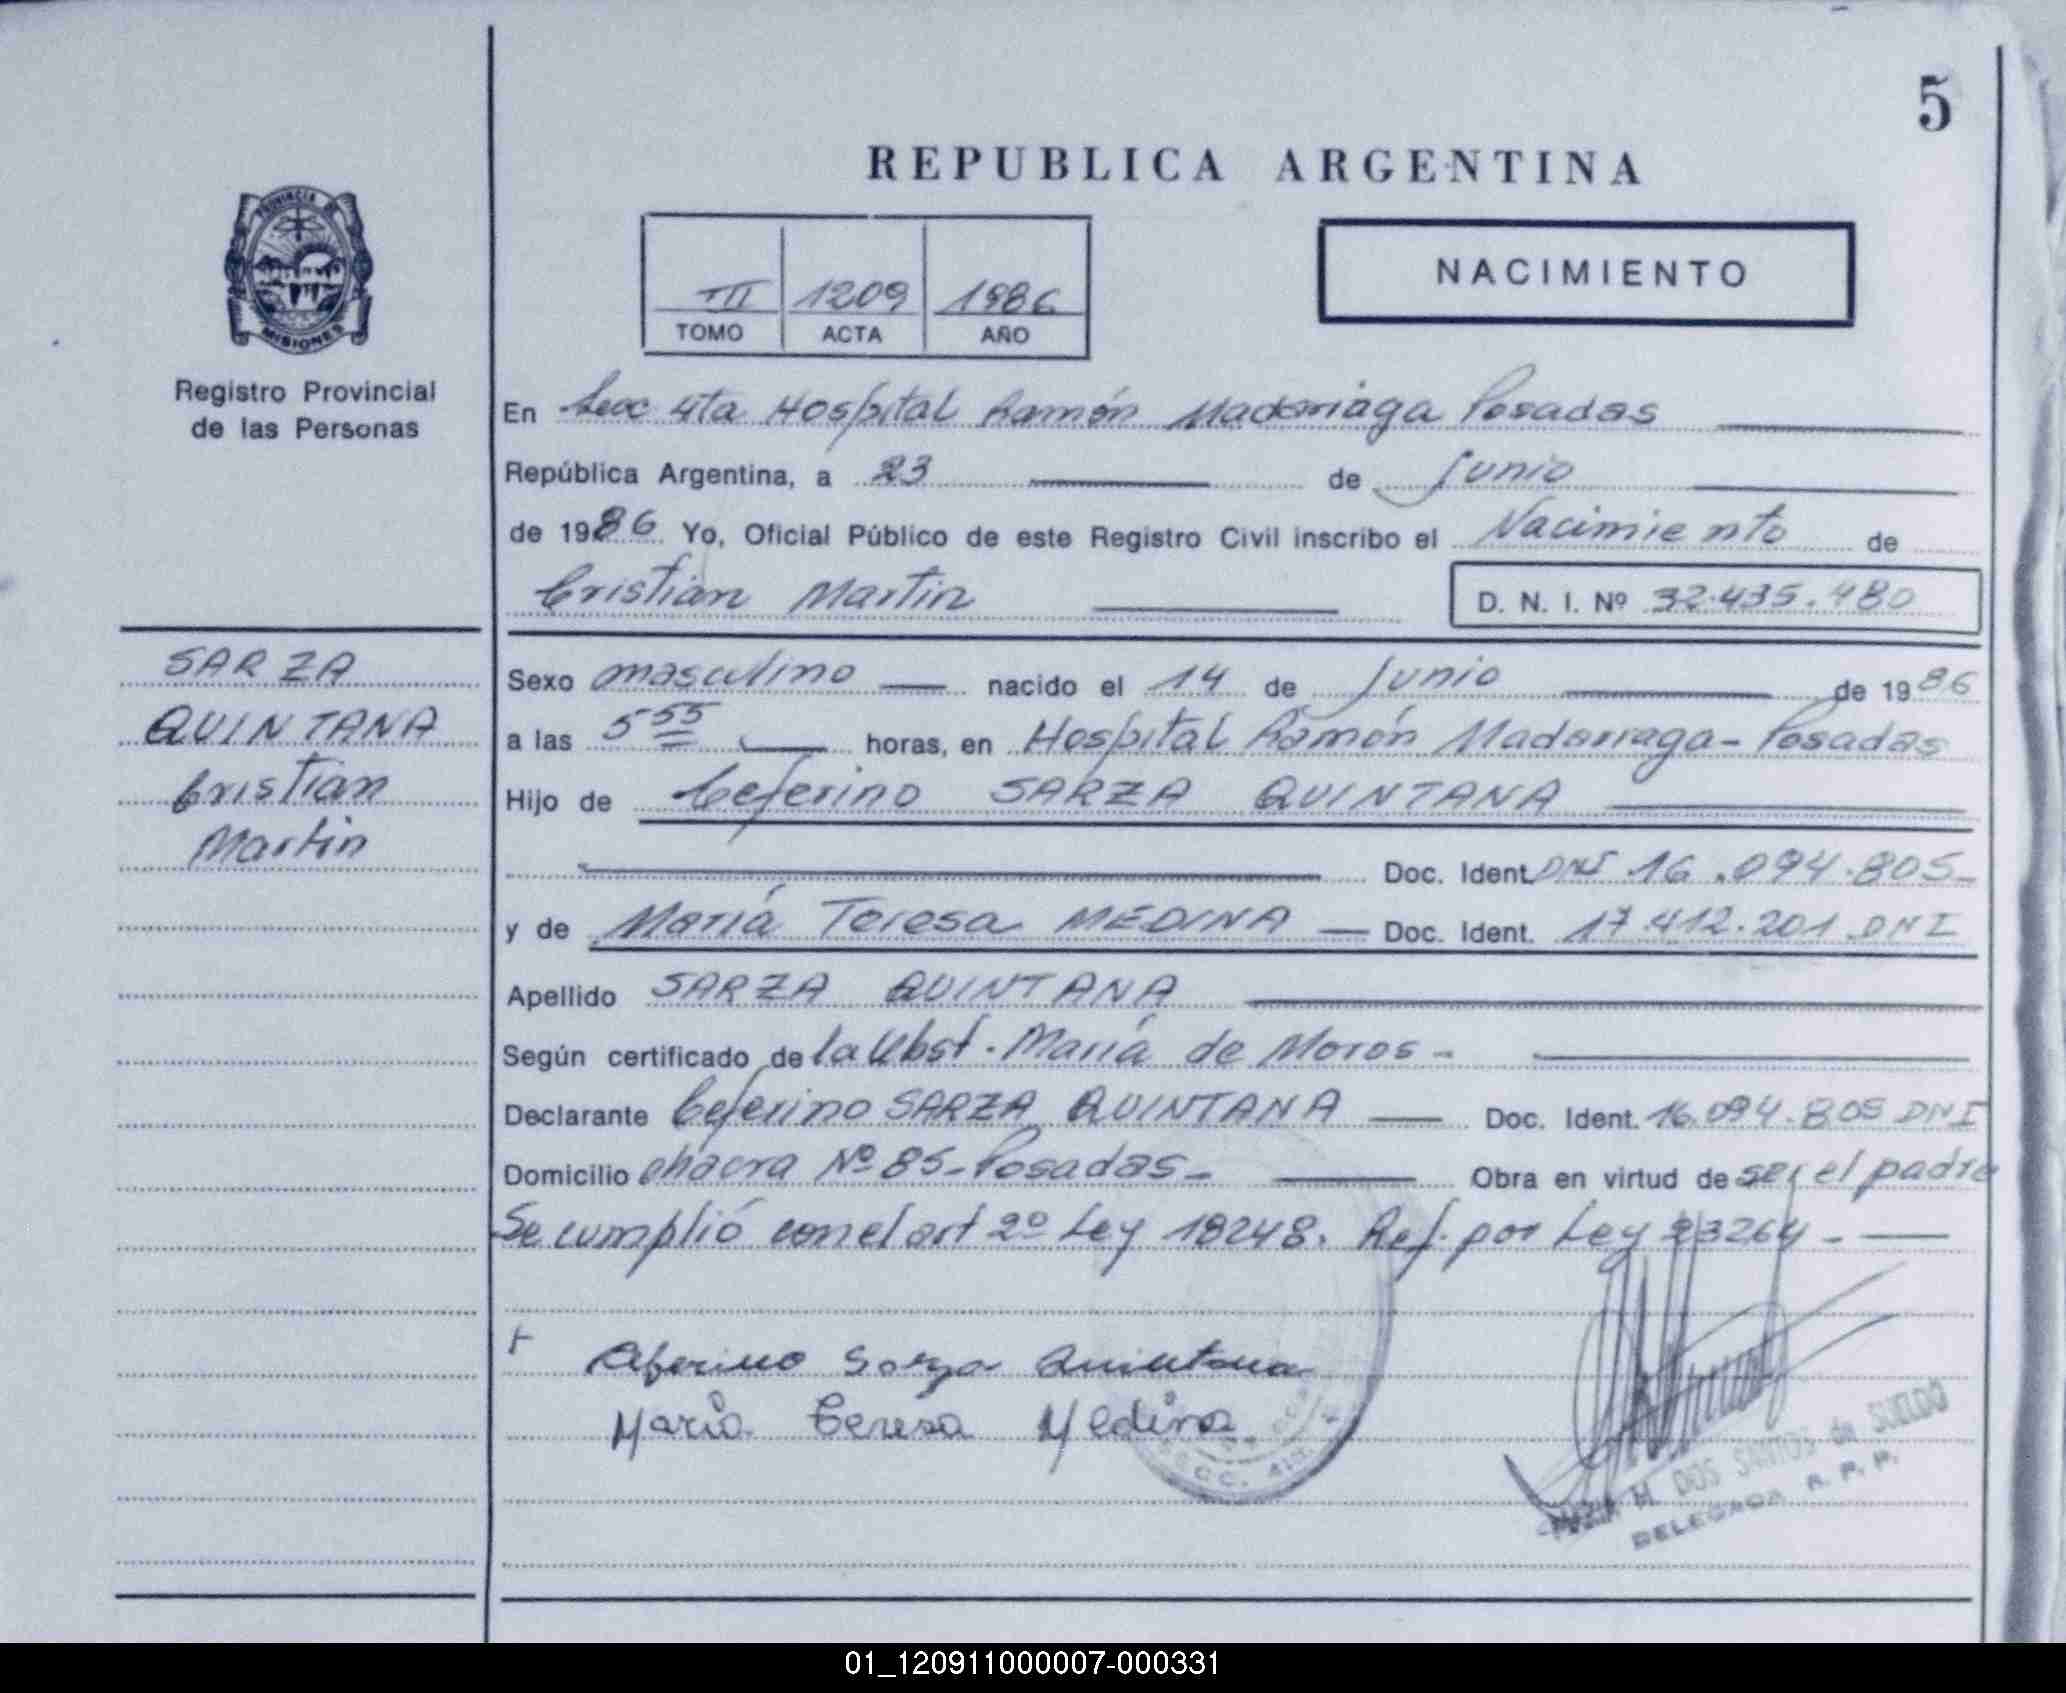 5
REPUBLICA ARGENTINA
PROVINCIA DE
MISIONES
Registro Provincial
de las Personas
III 1209 1986
TOMO ACTA AÑO
NACIMIENTO
En Secc 4ta Hospital Ramón Madariaga Posadas
República Argentina, a 23 de Junio
de 1986 Yo, Oficial Público de este Registro Civil inscribo el Nacimiento de
Cristian Martin D. N. I. Nº 32.435.480
SARZA
QUINTANA
Cristian
Martin
Sexo masculino nacido el 14 de Junio de 1986
a las 5 55 horas, en Hospital Ramón Madarraga - Posadas
Hijo de Ceferino SARZA QUINTANA
Doc. Ident. DNI 16.094.805-
y de María Teresa MEDINA Doc. Ident. 17.412.201 DNI
Apellido SARZA QUINTANA
Según certificado de la Obst. María de Moros -
Declarante Ceferino SARZA QUINTANA Doc. Ident. 16.094.805 DNI
Domicilio chacra Nº 85 - Posadas - Obra en virtud de ser el padre
Se cumplió con el art 2º Ley 18248. Ref. por Ley 23264 -
Ceferino Sarza Quintana
María Teresa Medina
SECC. 4ta
M. DOS SANTOS de SUELDO
DELEGADA R. P. P.
01_120911000007-000331